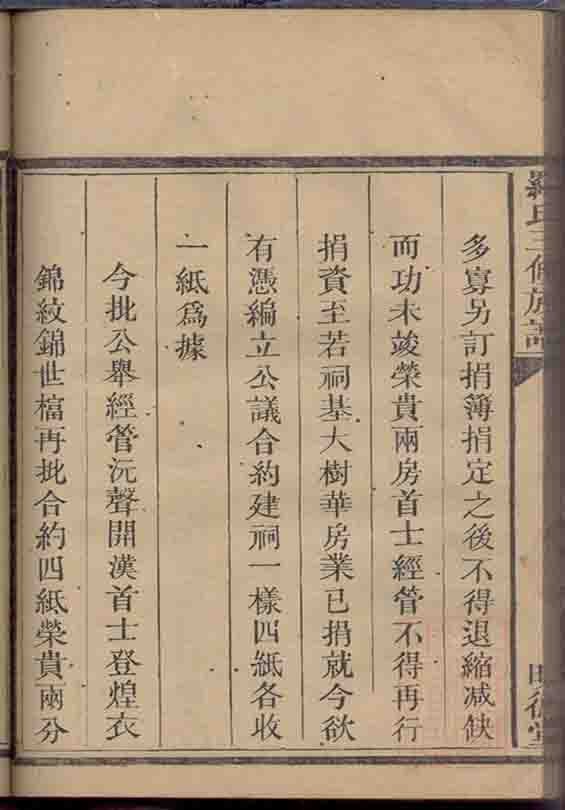 多寡另訂捐簿捐定之後不得退縮減缺
而功未竣榮貴兩房首士經管不得再行
捐資至若祠基大樹華房業已捐就今欲
有憑編立公議合約建祠一樣四紙各收
一紙爲據
今批公舉經管沅聲開漢首士登煌衣
錦紋錦世檔再批合約四紙榮貴兩分